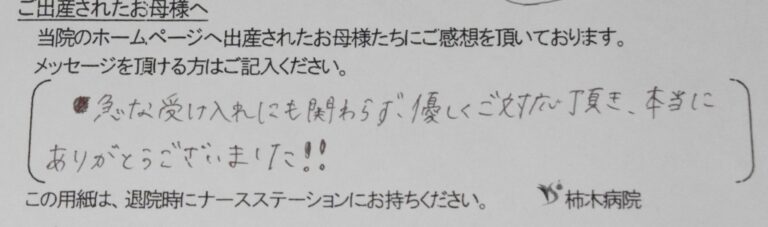 ご出産されたお母様へ
当院のホームページへ出産されたお母様たちにご感想を頂いております。
メッセージを頂ける方はご記入ください。
急な受け入れにも関わらず、優しくご対応頂き、本当に
ありがとうございました!!
この用紙は、退院時にナースステーションにお持ちください。 柿木病院